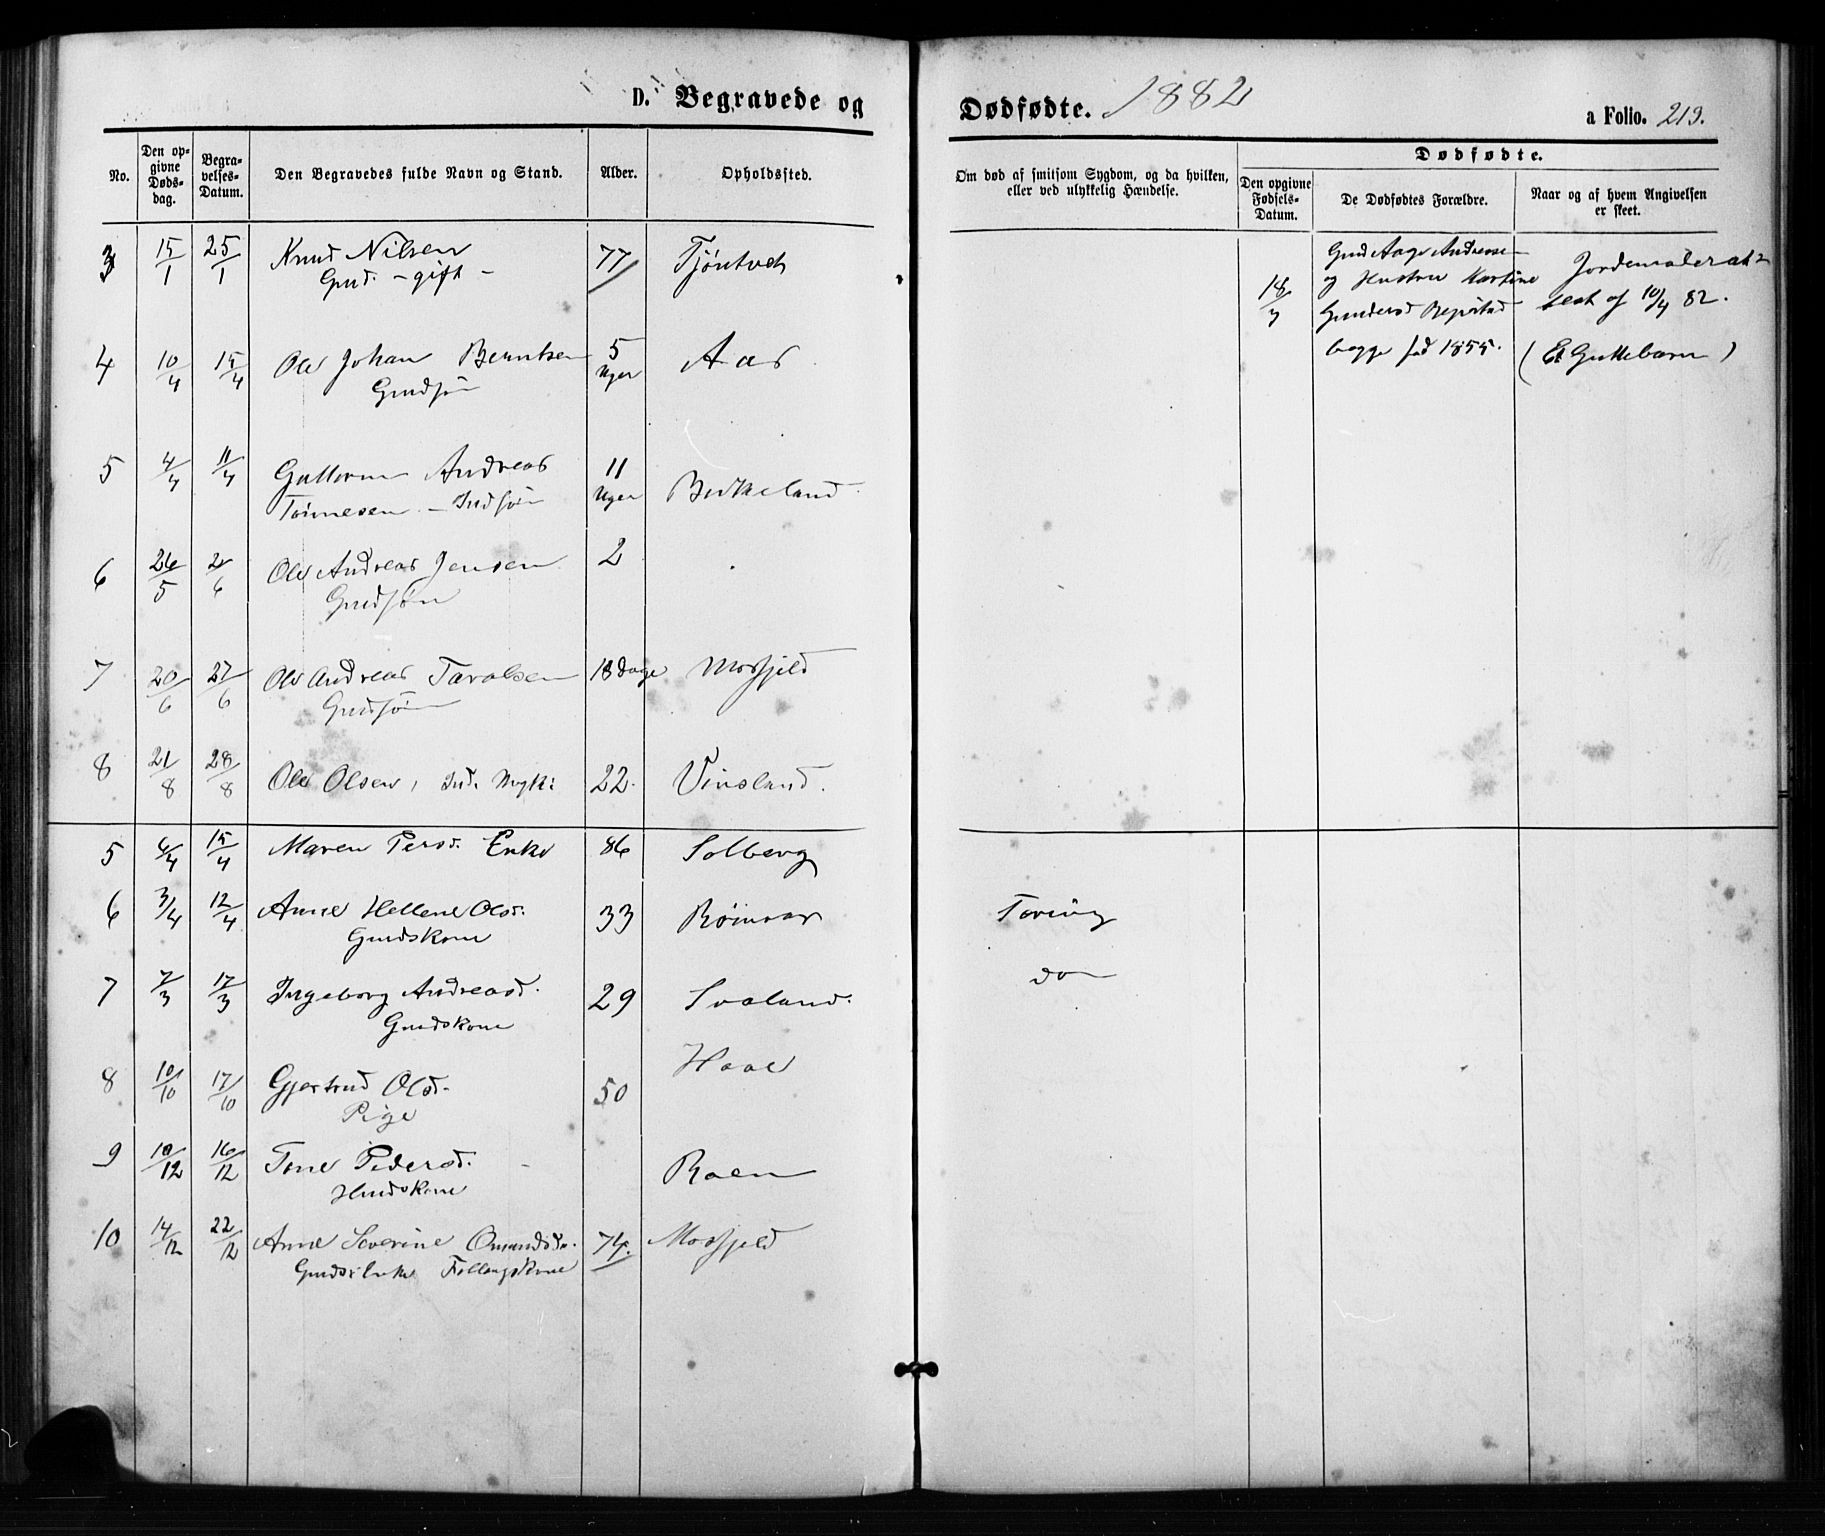 D. Begravede og Dødfødte. 1882
a Folio. 213.
No.
Den opgivne Dødsdag.
Begravelses-Datum.
Den Begravedes fulde Navn og Stand.
Alder.
Opholdssted.
Om død af smitsom Sygdom, og da hvilken, eller ved ulykkelig Hændelse.
Dødfødte.
Den opgivne Fødsels-Datum.
De Dødfødtes Forældre.
Naar og af hvem Angivelsen er skeet.
3 15/1 25/1 Knud Nilsen 77 Tjöntvet
Gmd. - gift -
4 10/4 15/4 Ole Johan Berntsen 5 Uger Aas
Gmdsön
5 4/4 11/4 Guttorm Andreas 11 Uger Birkeland
Tönnesen - Indsön
6 26/5 2/6 Ole Andreas Jensen 2
Gmdsön
7 20/6 27/6 Ole Andreas Taralsen 18 Dage Mosfjeld
Gmdsön
8 21/8 28/8 Ole Olsen, Ind. Ungk: 22. Vinsland.
5 6/4 15/4 Maren Persd. Enke 86 Solberg
6 3/4 12/4 Anne Hellene Olsd. 33 Röinaas Tæring
Gmdskone
7 7/3 17/3 Ingeborg Andreasd. 29 Svaland. do
Gmdskone
8 10/10 17/10 Gjertrud Olsd. 50 Haae
Pige
9 10/12 16/12 Tone Pedersd. Roen
Hmdskone
10 14/12 22/12 Anne Severine Omundsd. 74. Mosfjeld
Gmds Enke
18/3 Gmd Aage Andersen
og Hustru Martine
Gundersd Repstad
begge fød 1855.
Jordemoderat-
test af 10/4 82.
(Et Guttebarn)